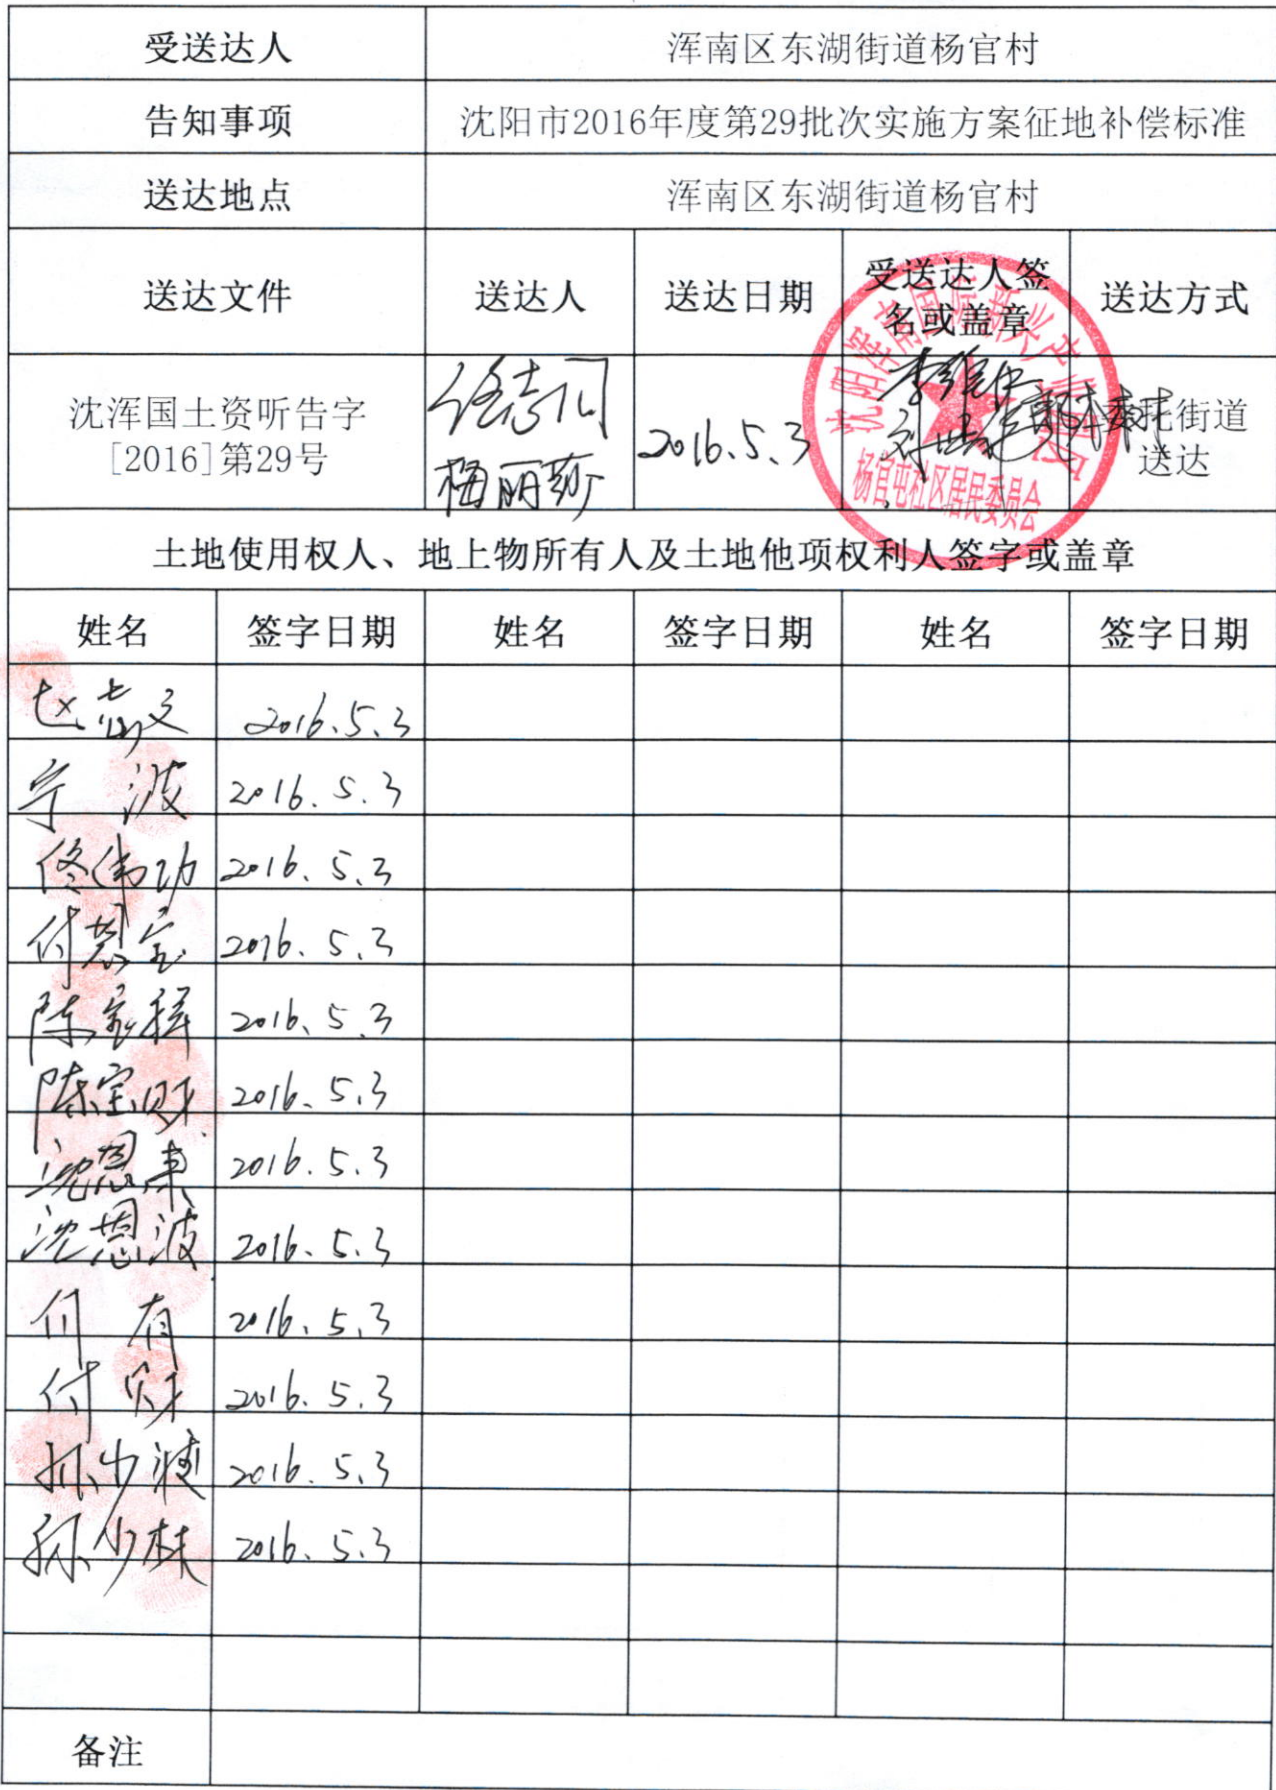 受送达人 浑南区东湖街道杨官村
告知事项 沈阳市2016年度第29批次实施方案征地补偿标准
送达地点 浑南区东湖街道杨官村
送达文件 送达人 送达日期 受送达人签名或盖章 送达方式
沈浑国土资听告字
[2016]第29号
梅丽莎
2016.5.3
委托街道
送达
杨官屯社区居民委员会
土地使用权人、地上物所有人及土地他项权利人签字或盖章
姓名 签字日期 姓名 签字日期 姓名 签字日期
赵志文 2016.5.3
宁波 2016.5.3
佟伟功 2016.5.3
付恩宝 2016.5.3
陈宝祥 2016.5.3
陈宝财 2016.5.3
沈恩来 2016.5.3
沈恩波 2016.5.3
付有 2016.5.3
付财 2016.5.3
孙少波 2016.5.3
孙少林 2016.5.3
备注